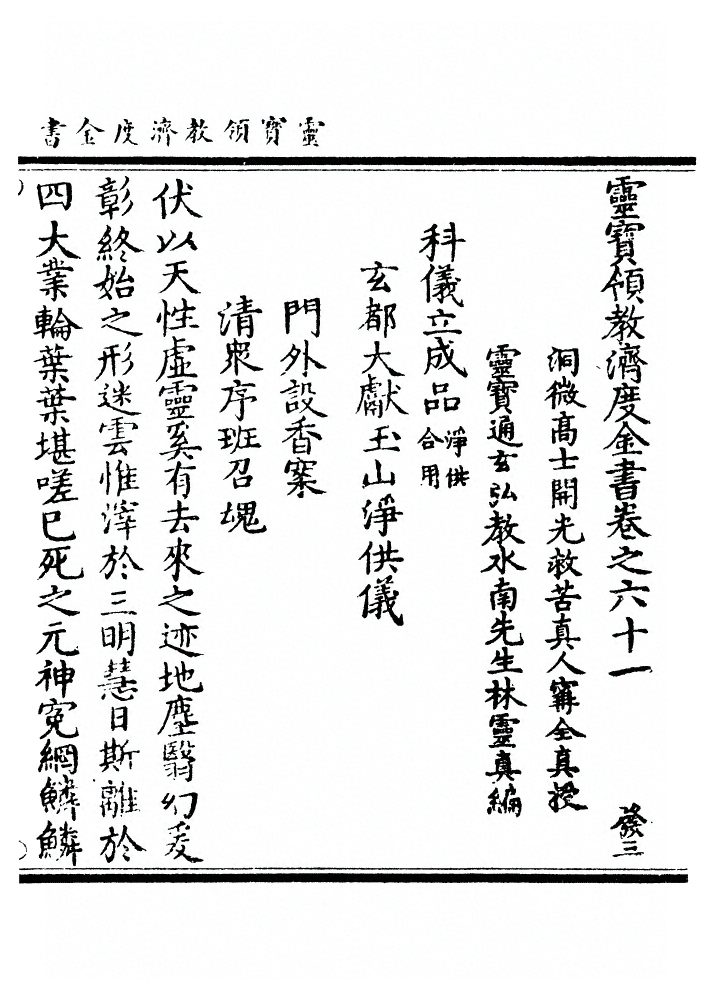 靈寶領教濟度金書
靈寶領教濟度金書卷之六十一 發三
洞微高士開光救苦真人甯全真授
靈寶通玄弘教水南先生林靈真編
科儀立成品 淨供合用
玄都大獻玉山淨供儀
門外設香案
清眾序班召魂
伏以天性虛靈奚有去來之迹地塵翳幻爰
彰終始之形迷雲惟滓於三明慧日斯離於
四大業輪葉葉堪嗟巳死之元神冤網鱗鱗